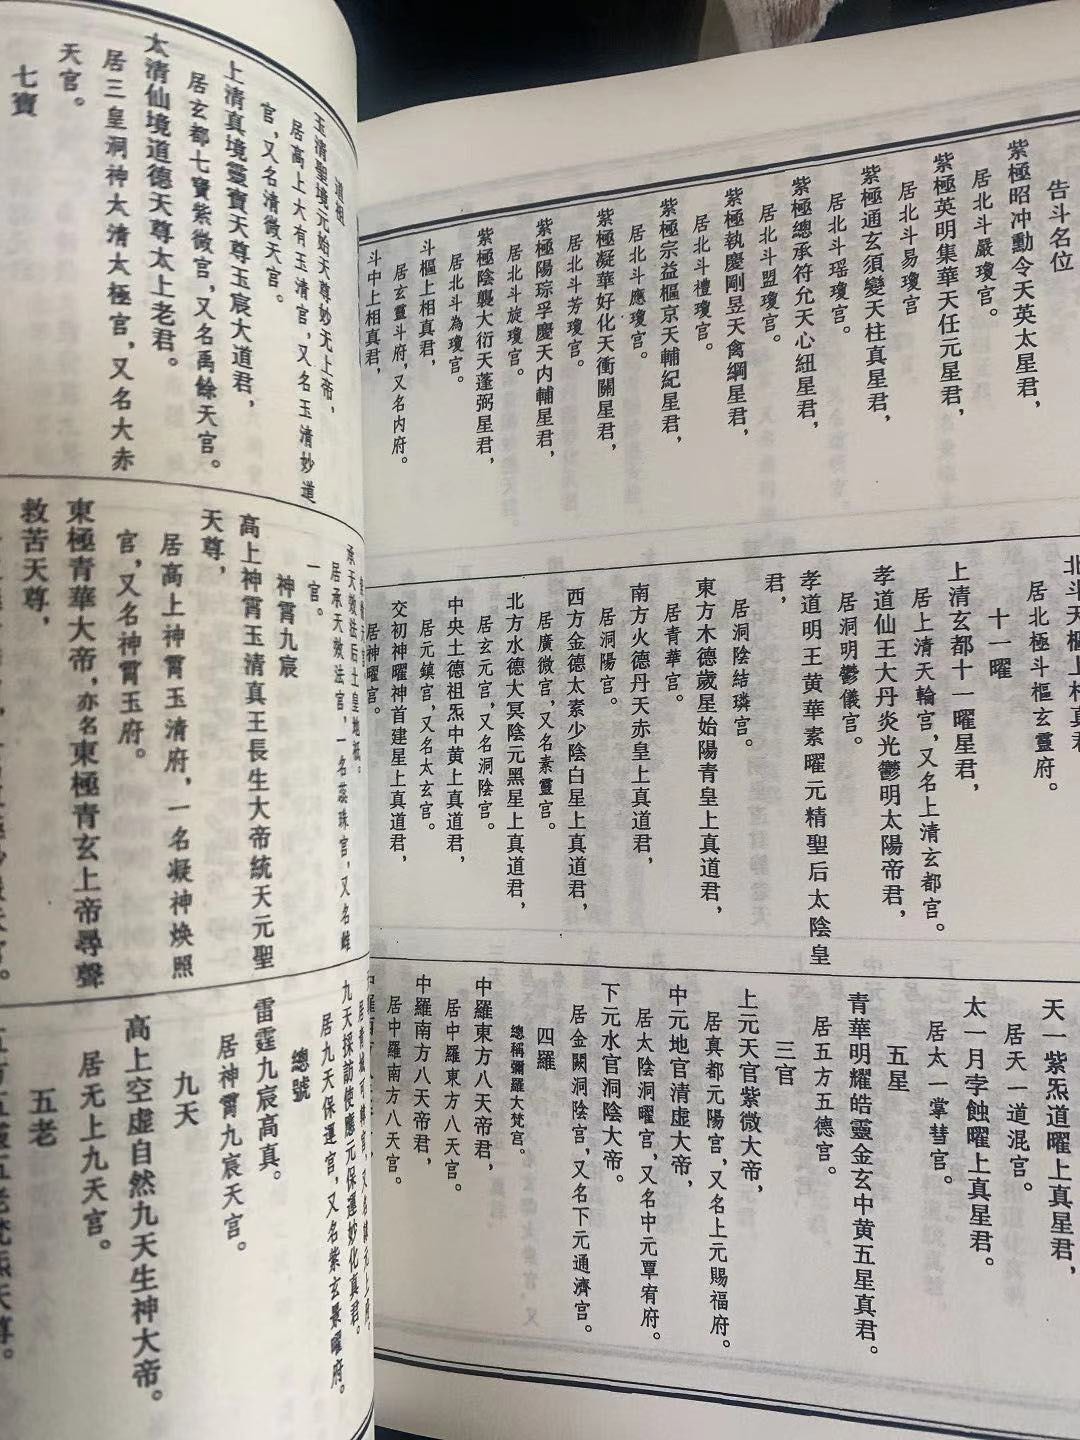 告斗名位
紫極昭冲勳令天英太星君，
居北斗嚴瓊宫。
紫極英明集華天任元星君，
居北斗易瓊宫
紫極通玄須變天柱真星君，
居北斗瑶瓊宫。
紫極總承符允天心紐星君，
居北斗盟瓊宫。
紫極執慶剛昱天禽綱星君，
居北斗禮瓊宫。
紫極宗益樞京天輔紀星君，
居北斗應瓊宫。
紫極凝華好化天衝關星君，
居北斗芳瓊宫。
紫極陽琮孚慶天内輔星君，
居北斗旋瓊宫。
紫極陰襲大衍天蓬弼星君，
居北斗為瓊宫。
斗樞上相真君，
居玄靈斗府，又名内府。
斗中上相真君，
北斗天樞上相真君
居北極斗樞玄靈府。
十一曜
上清玄都十一曜星君，
居上清天輪宫，又名上清玄都宫。
孝道仙王大丹炎光鬱明太陽帝君，
居洞明鬱儀宫。
孝道明王黄華素曜元精聖后太陰皇
君，
居洞陰結璘宫。
東方木德歲星始陽青皇上真道君，
居青華宫。
南方火德丹天赤皇上真道君，
居洞陽宫。
西方金德太素少陰白星上真道君，
居廣微宫，又名素靈宫。
北方水德大冥陰元黑星上真道君，
居玄元宫，又名洞陰宫。
中央土德祖炁中黄上真道君，
居元鎮宫，又名太玄宫。
交初神曜神首建星上真道君，
居神曜宫。
天一紫炁道曜上真星君，
居天一道混宫。
太一月孛蝕曜上真星君。
居太一掌彗宫。
五星
青華明耀皓靈金玄中黄五星真君。
居五方五德宫。
三官
上元天官紫微大帝，
居真都元陽宫，又名上元賜福府。
中元地官清虚大帝，
居太陰洞曜宫，又名中元覃宥府。
下元水官洞陰大帝。
居金闕洞陰宫，又名下元通濟宫。
四羅
總稱彌羅大梵宫。
中羅東方八天帝君，
居中羅東方八天宫。
中羅南方八天帝君，
居中羅南方八天宫。
道祖
玉清聖境元始天尊妙无上帝，
居高上大有玉清宫，又名玉清妙道
宫，又名清微天宫。
上清真境靈寶天尊玉宸大道君，
居玄都七寶紫微宫，又名禹餘天宫。
太清仙境道德天尊太上老君。
居三皇洞神太清太極宫，又名大赤
天宫。
七寶
承天效法后土皇地祇。
居承天效法宫，一名蕊珠宫，又名雌
一宫。
神霄九宸
高上神霄玉清真王長生大帝統天元聖
天尊，
居高上神霄玉清府，一名凝神焕照
宫，又名神霄玉府。
東極青華大帝，亦名東極青玄上帝尋聲
救苦天尊，
九天採訪使應元保運妙化真君。
居九天保運宫，又名紫玄景曜府。
總號
雷霆九宸高真。
居神霄九宸天宫。
九天
高上空虚自然九天生神大帝。
居无上九天宫。
五老